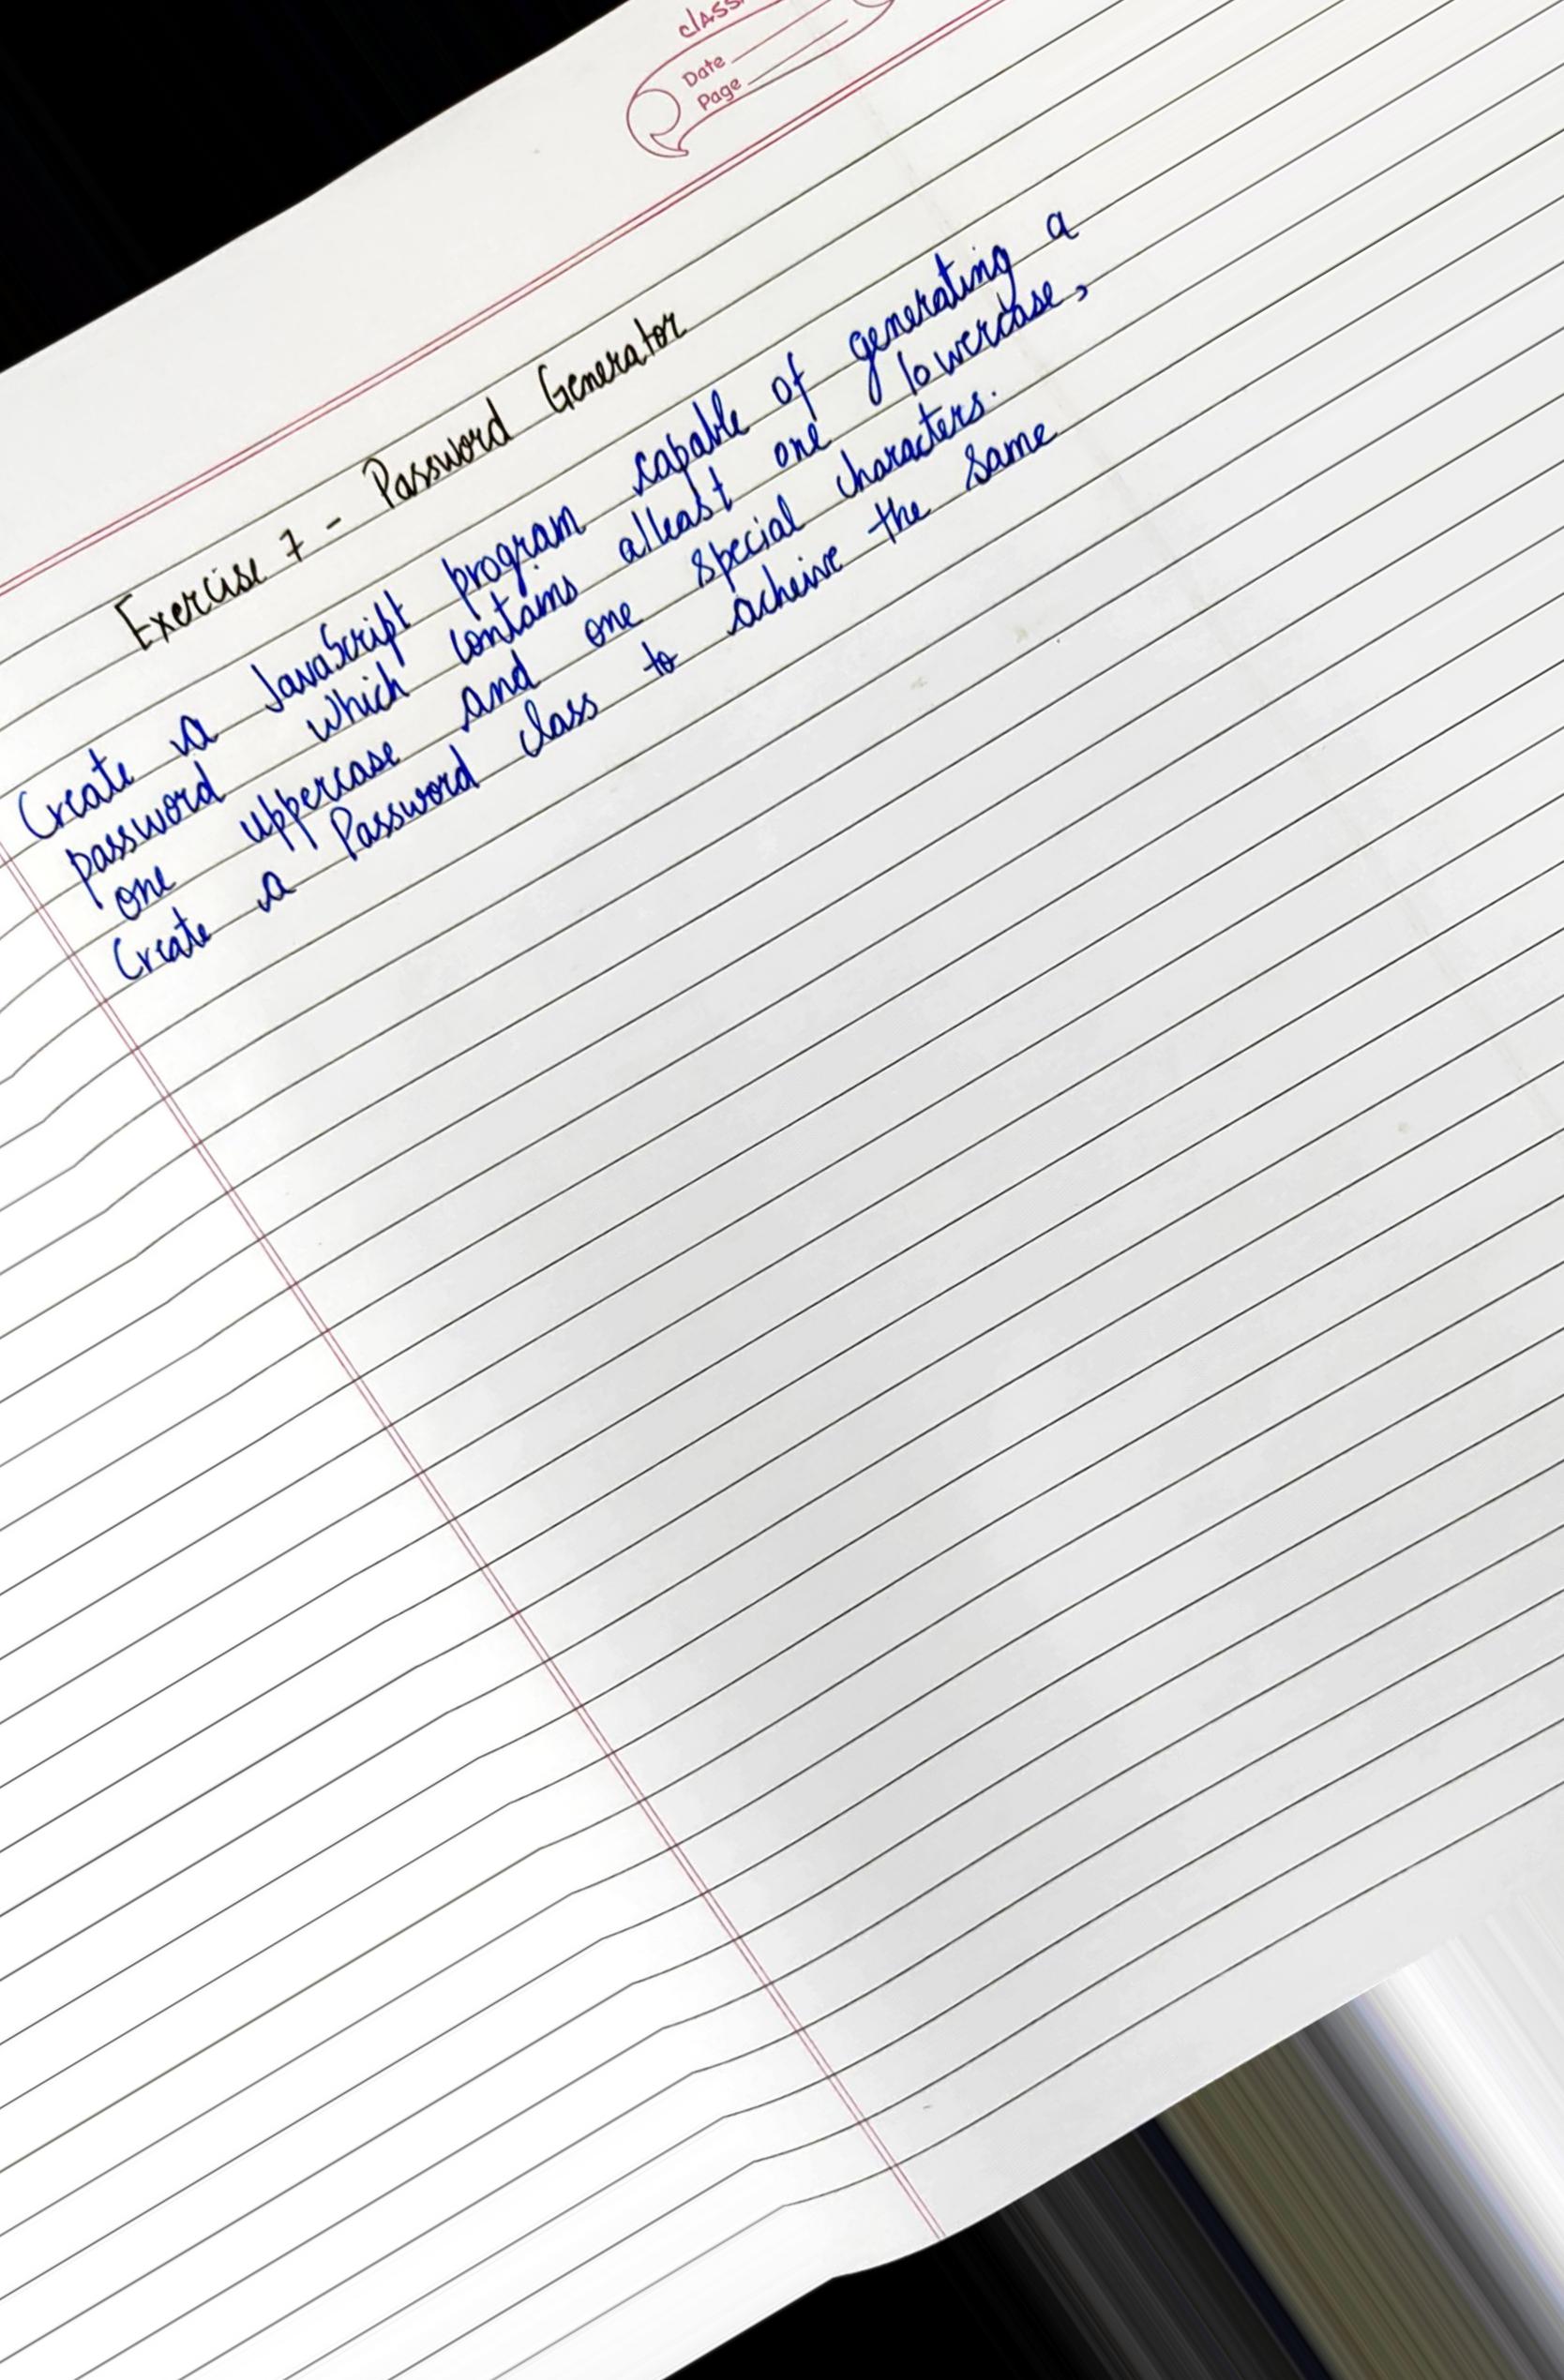 Date
Page
Exercise 7 - Password Generator
Create a JavaScript program capable of generating a
password which contains atleast one lowercase,
one uppercase and one special characters.
Create a Password class to acheive the same